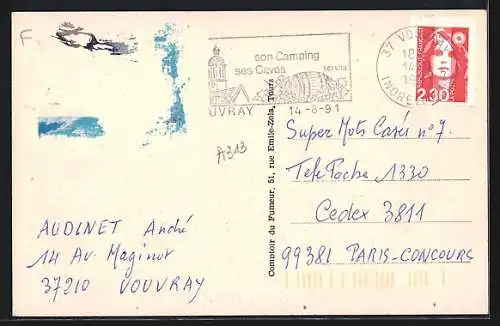 F
son Camping
ses Caves
UVRAY
14-8-91
37 VOUVRAY
18
14
19
INDRE
2,30
A313
Comptoir du Fumeur, 51, rue Emile-Zola, Tours
Super Mots Casés n°7.
Télé Poche 1330
Cedex 3811
99381 PARIS-CONCOURS
AUDINET André
14 Av. Maginot
37210 VOUVRAY